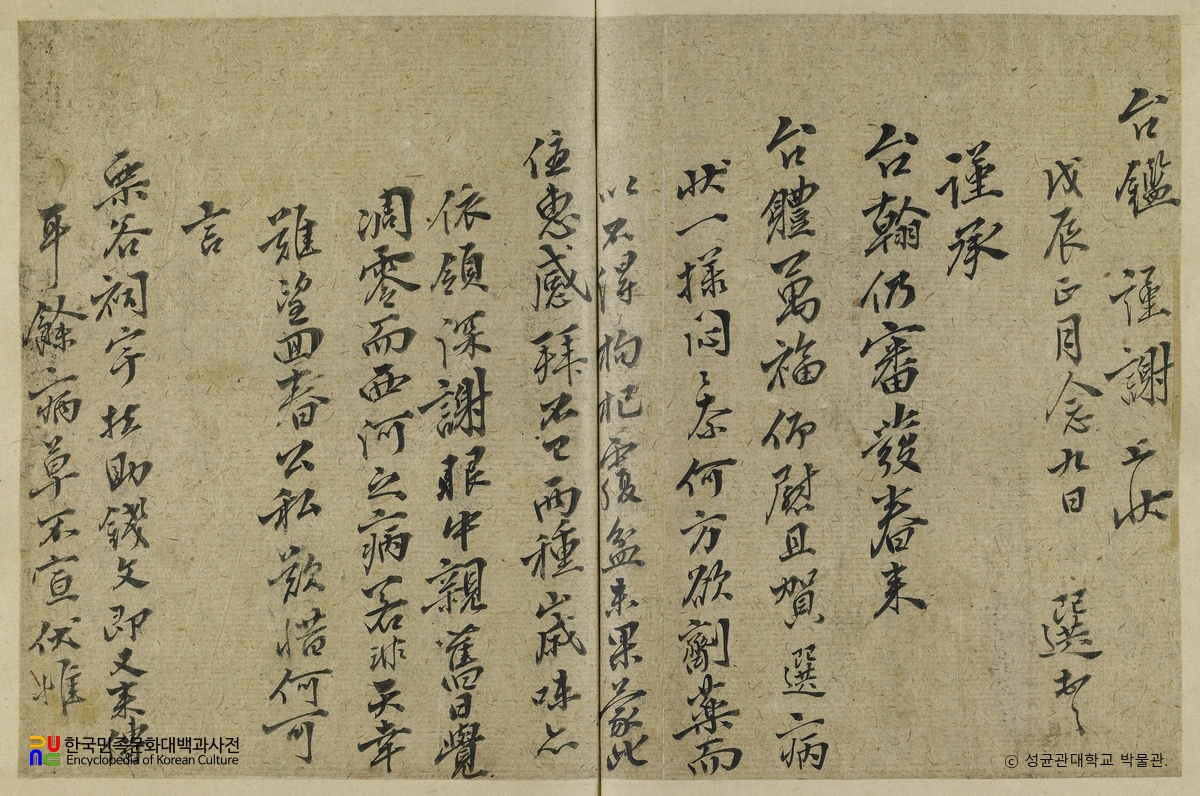 台鑑 謹謝上狀
戊辰正月念九日 選頓
謹承
台翰仍審發春来
台體萬福仰慰且賀選病
狀一様悶〻奈何方欲劑藥而
以不得枸杞覆盆未果蒙此
惠感拜不已兩種歲味亦
依領深謝眼中親舊日覺
凋零而西河之病若非天幸
難望回春公私歎惜何可
言
栗谷祠宇扶助錢文即又来
耳餘病草不宣伏惟
한국민족문화대백과사전
Encyclopedia of Korean Culture
ⓒ 성균관대학교 박물관.